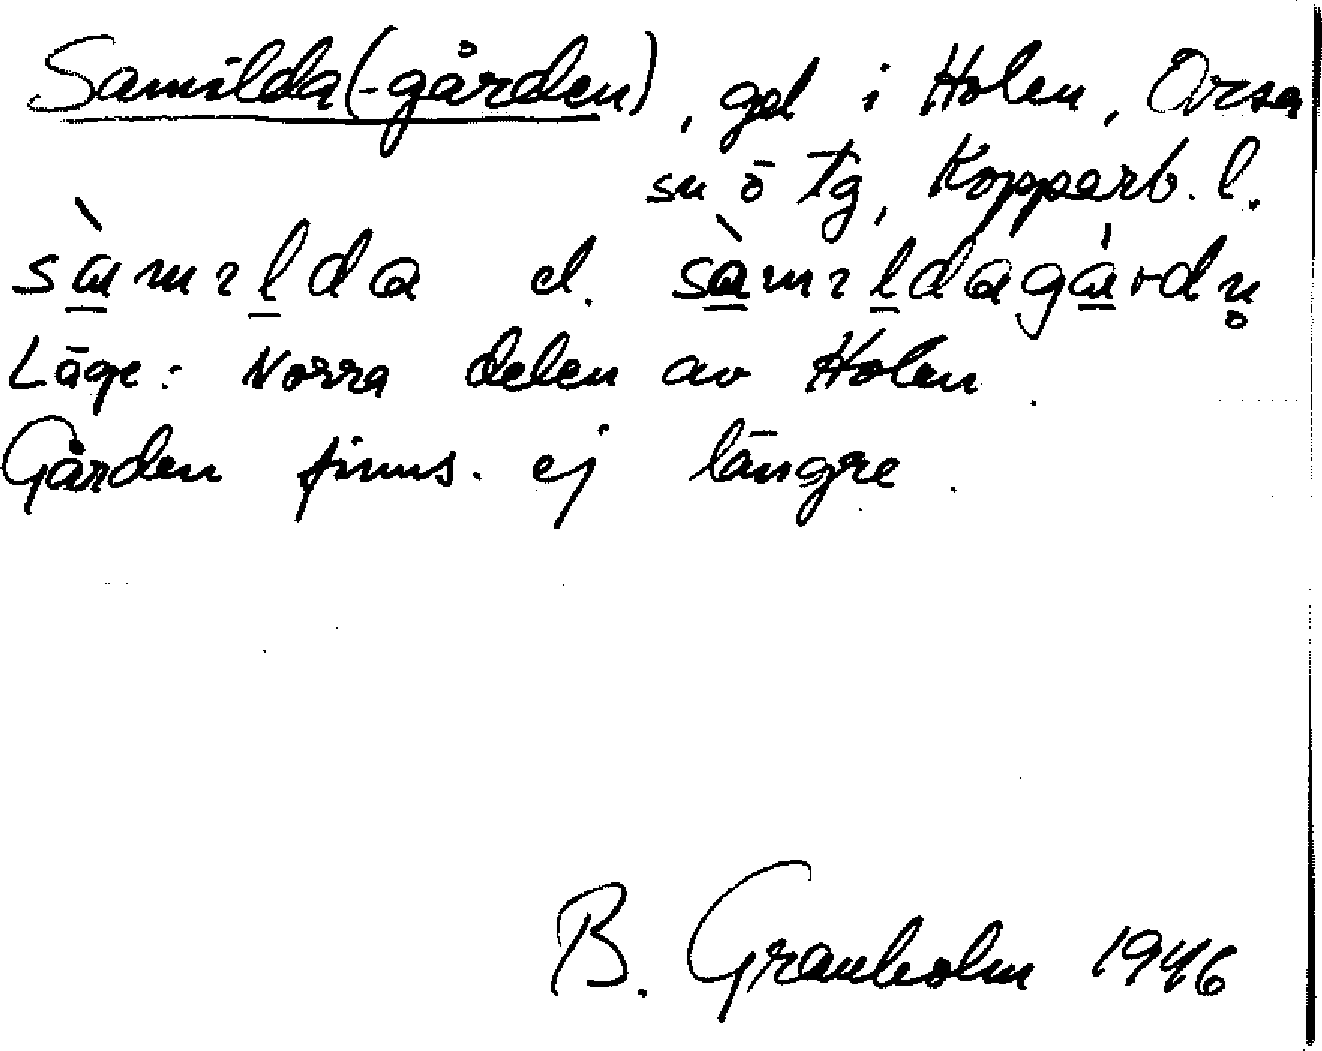 Samilda(-gården), gd i Holen, Orsa
sn ö Tg, Kopparb. l.
sàmɩlda el. sàmɩldagàrdn̥
Läge: Norra delen av Holen.
Gården finns ej längre.
B. Granholm 1946